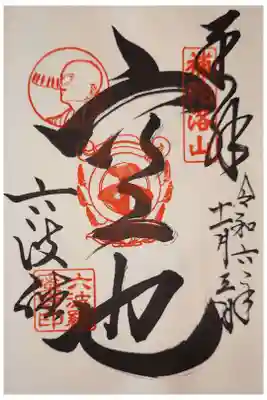 奉拝
補陀洛山
令和六年
十一月五日
空也
六波
六波羅